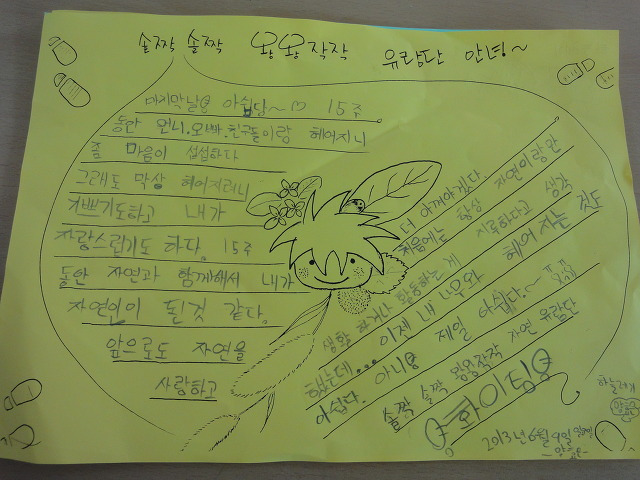 솔짝 솔짝 왕왕작작 유람단 안녕~
마지막날 아쉽당~♡ 15주
동안 언니.오빠.친구들이랑 헤어지니
좀 마음이 섭섭하다
그래도 막상 헤어지려니
기쁘기도하고 내가
자랑스럽기도 하다. 15주
동안 자연과 함께해서 내가
자연인이 된것 같다.
앞으로도 자연을
사랑하고
더 아껴야겠다.
처음에는 항상 자연이랑만
생활 하거나 활동하는게 지루하다고 생각
했는데... 이젠 내 나무와 헤어지는 것도
아쉽다. 아니 제일 아쉽다.~ ㅠㅠ
솔짝 솔짝 왕왕작작 자연 유람단
화이팅
하늘재
2013년 6월 9일